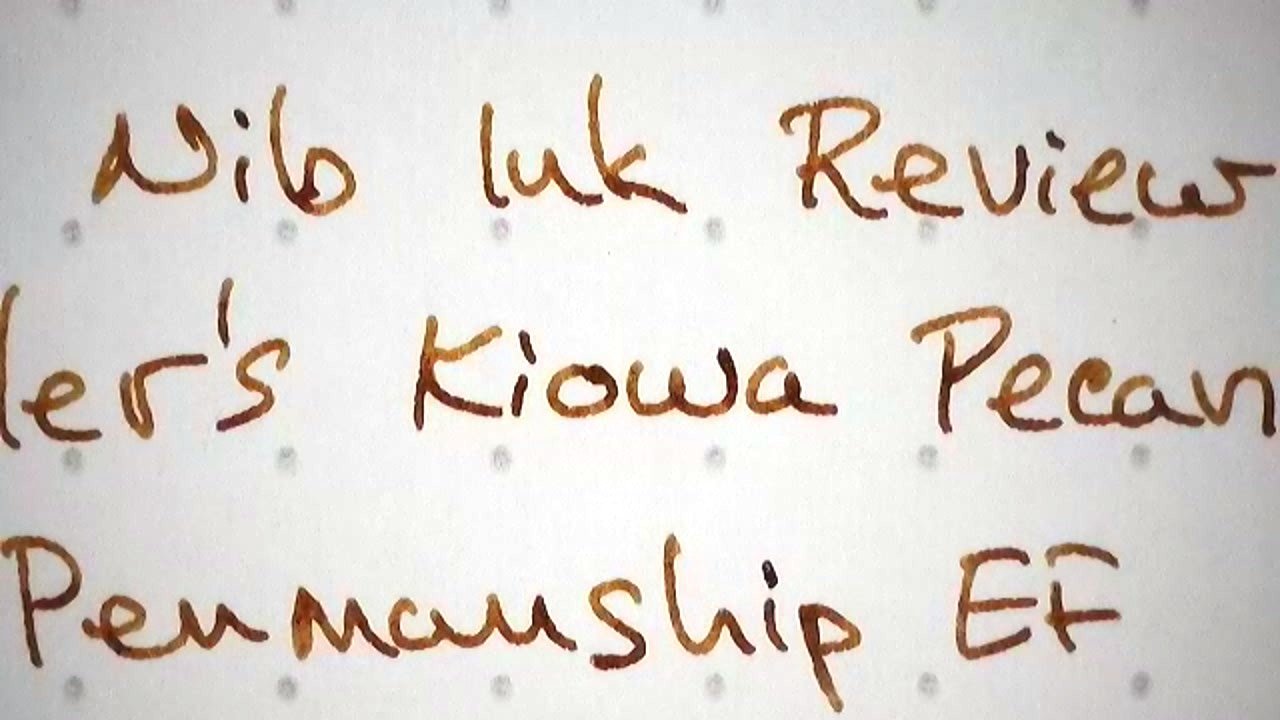 Nib Ink Review
ler's Kiowa Pecan
Penmanship EF